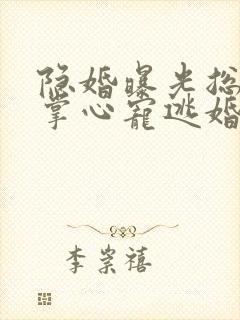 隐婚曝光总
掌心宠逃婚
李崇禧